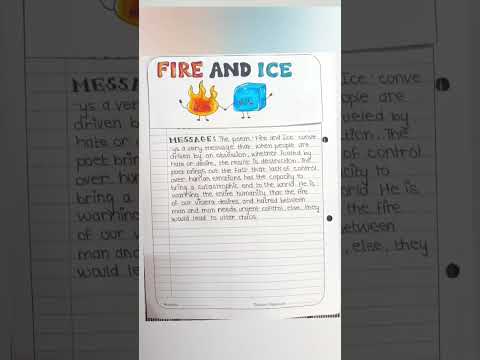 FIRE AND ICE
MESSAGE: The poem 'Fire and Ice' conve
-ys a very message that when people are
driven by an obsession, whether fueled by
hate or desire, the result is destruction. The
poet brings out the fact that lack of control
over human emotions has the capacity to
bring a catastrophic end to the world. He is
warning the entire humanity that the fire
of our desires and hatred between
man and man needs urgent control, else, they
would lead to utter chaos.
Teacher's Signature